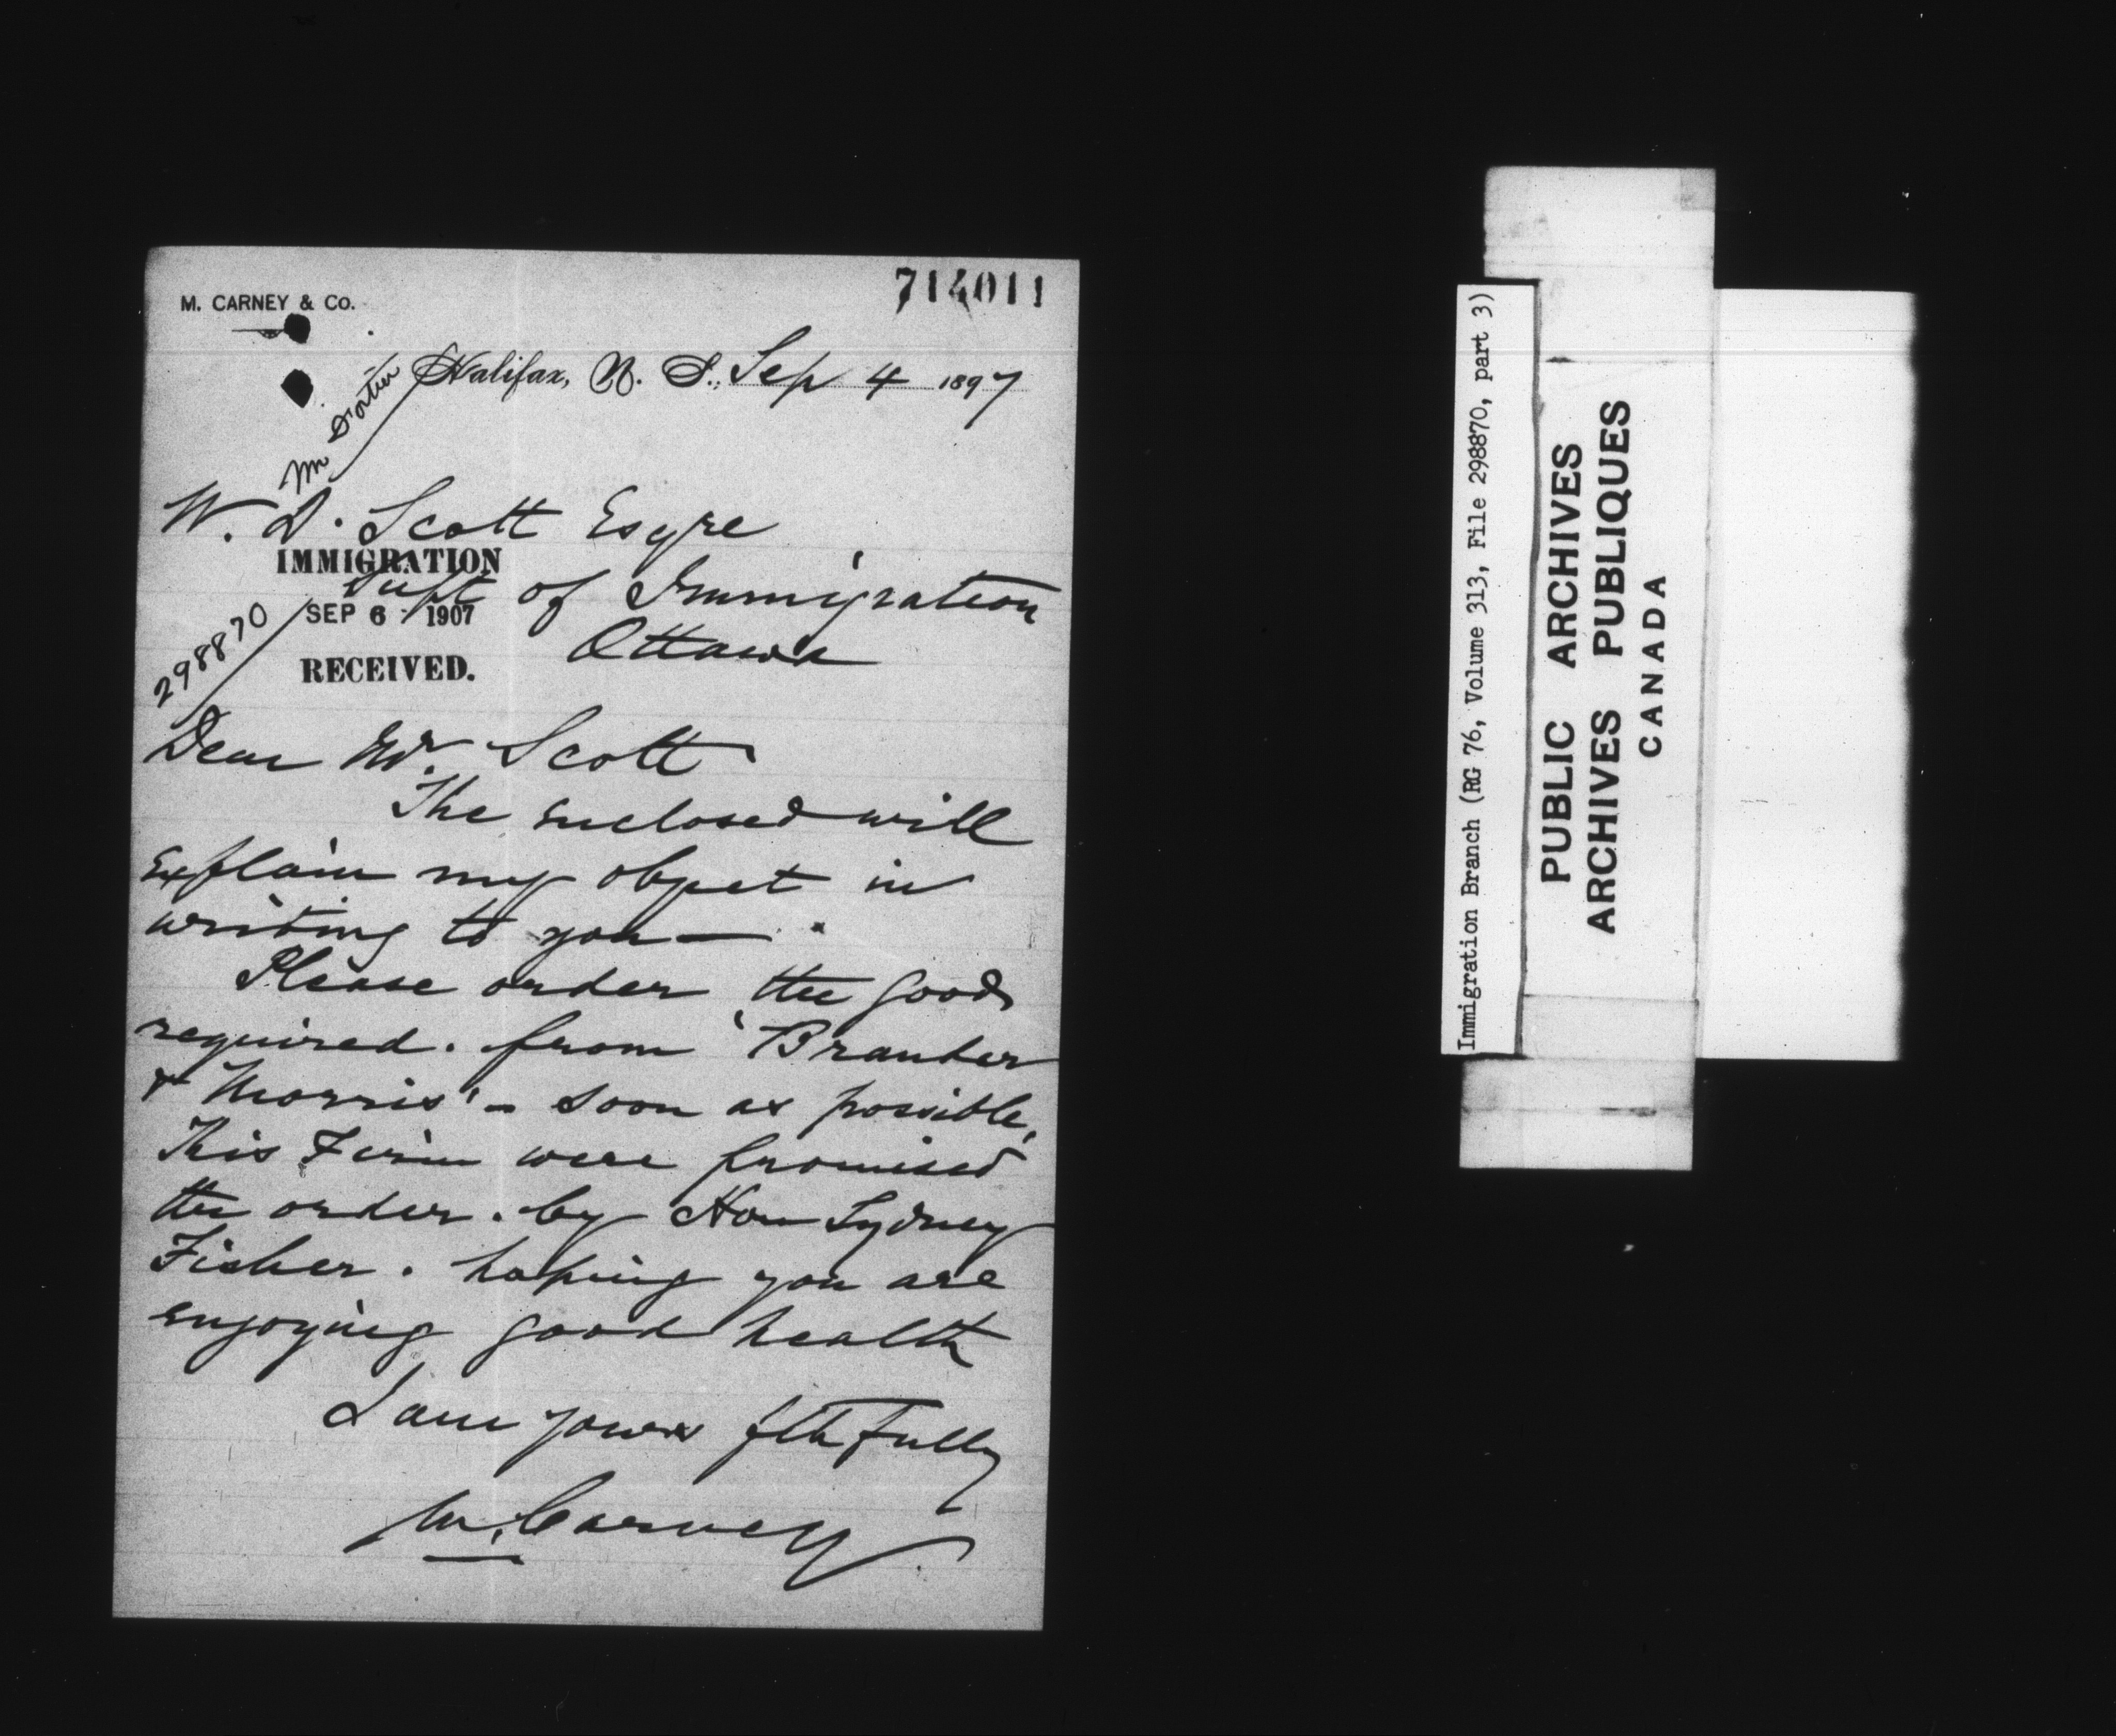 M. CARNEY & Co.
714011
Halifax, N. S., Sep 4 1897
Mr
W. D. Scott Esqre
IMMIGRATION
Supt of Immigration
SEP 6 - 1907
Ottawa
298870
RECEIVED.
Dear Mr. Scott
The enclosed will
explain my object in
writing to you —
Please order the goods
required. from 'Brander
& Morris' - soon as possible,
This Firm were promised
the order. by Hon Sydney
Fisher. hoping you are
enjoying good health
I am yours fthfully
M. Carney
Immigration Branch (RG 76, Volume 313, File 298870, part 3)
PUBLIC ARCHIVES
ARCHIVES PUBLIQUES
CANADA